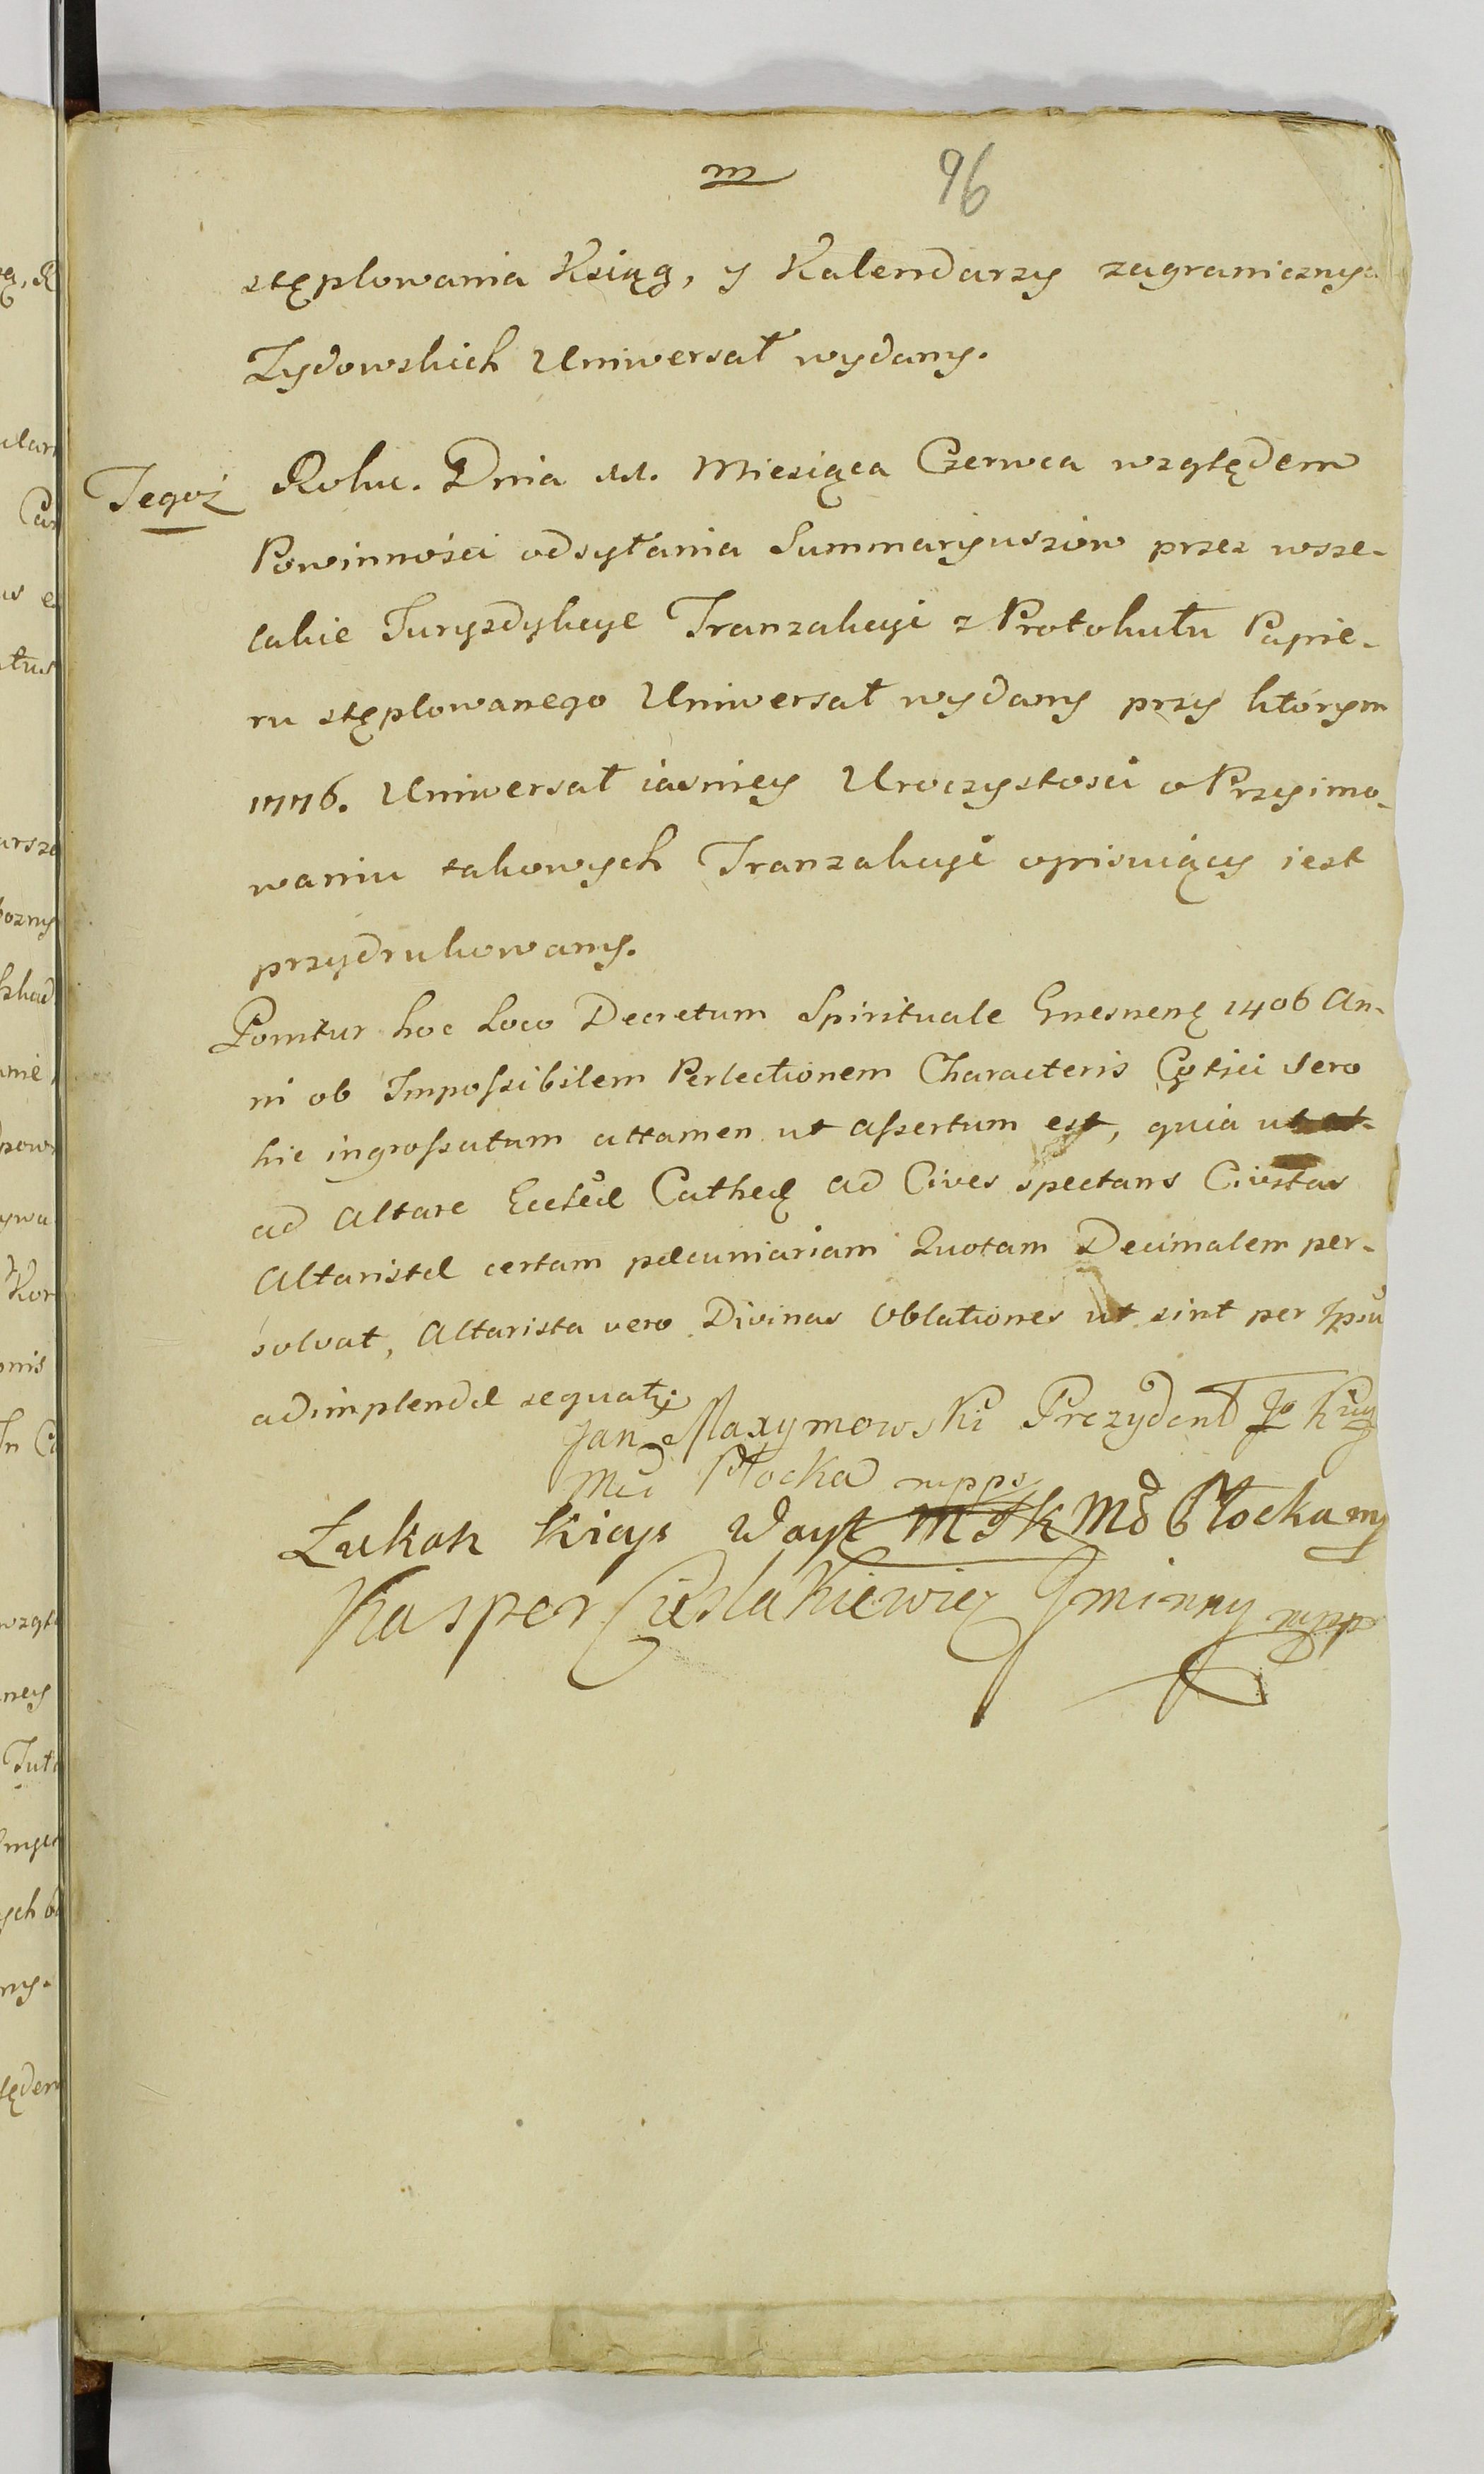 m 96
stęplowania Ksiąg, y Kalendarzy zagranicznych
Żydowskich Uniwersał wydany.
Tegoż Roku. Dnia 11. Miesiąca Czerwca względem
Powinności odsyłania Summaryuszów przez wsze-
lakie Juryzdykcye Tranzakcyi z Protokułu Papie-
ru stęplowanego Uniwersał wydany przy którym
1776. Uniwersał iaśniey Uroczystości o Przyimo-
waniu takowych Tranzakcyi opisuiący iest
przydrukowany.
Ponitur hoc Loco Decretum Spirituale Gnesnenę 1406 An-
ni ob Impossibilem Perlectionem Characteris sero
hic ingrossatum attamen ut assertum est, quia ut
ad Altare Cathedę ad Cives spectans Civitas
Altaristæ certam pæcuniariam Quotam Decimalem per-
solvat, Altarista vero Divinas Oblationes ut sint per Ipsũ
adimplendæ
Jan Maxymowski Prezydent
Płocka mpps
Łukasz Kicys Woyt Płocka
Kasper Cieslakiewicz Gminny mpp